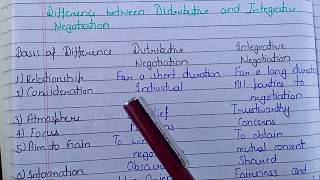 Difference between Distributive and Integrative
Negotiation
Basis of Difference Distributive Integrative
Negotiation Negotiation
1) Relationship For a short duration For a long duration
2) Consideration Individual All parties to
negotiation
3) Atmosphere Trustworthy
4) Focus Concerns
5) Aim to Gain To To obtain
mutual consent
6) Information Shared
Fairness and